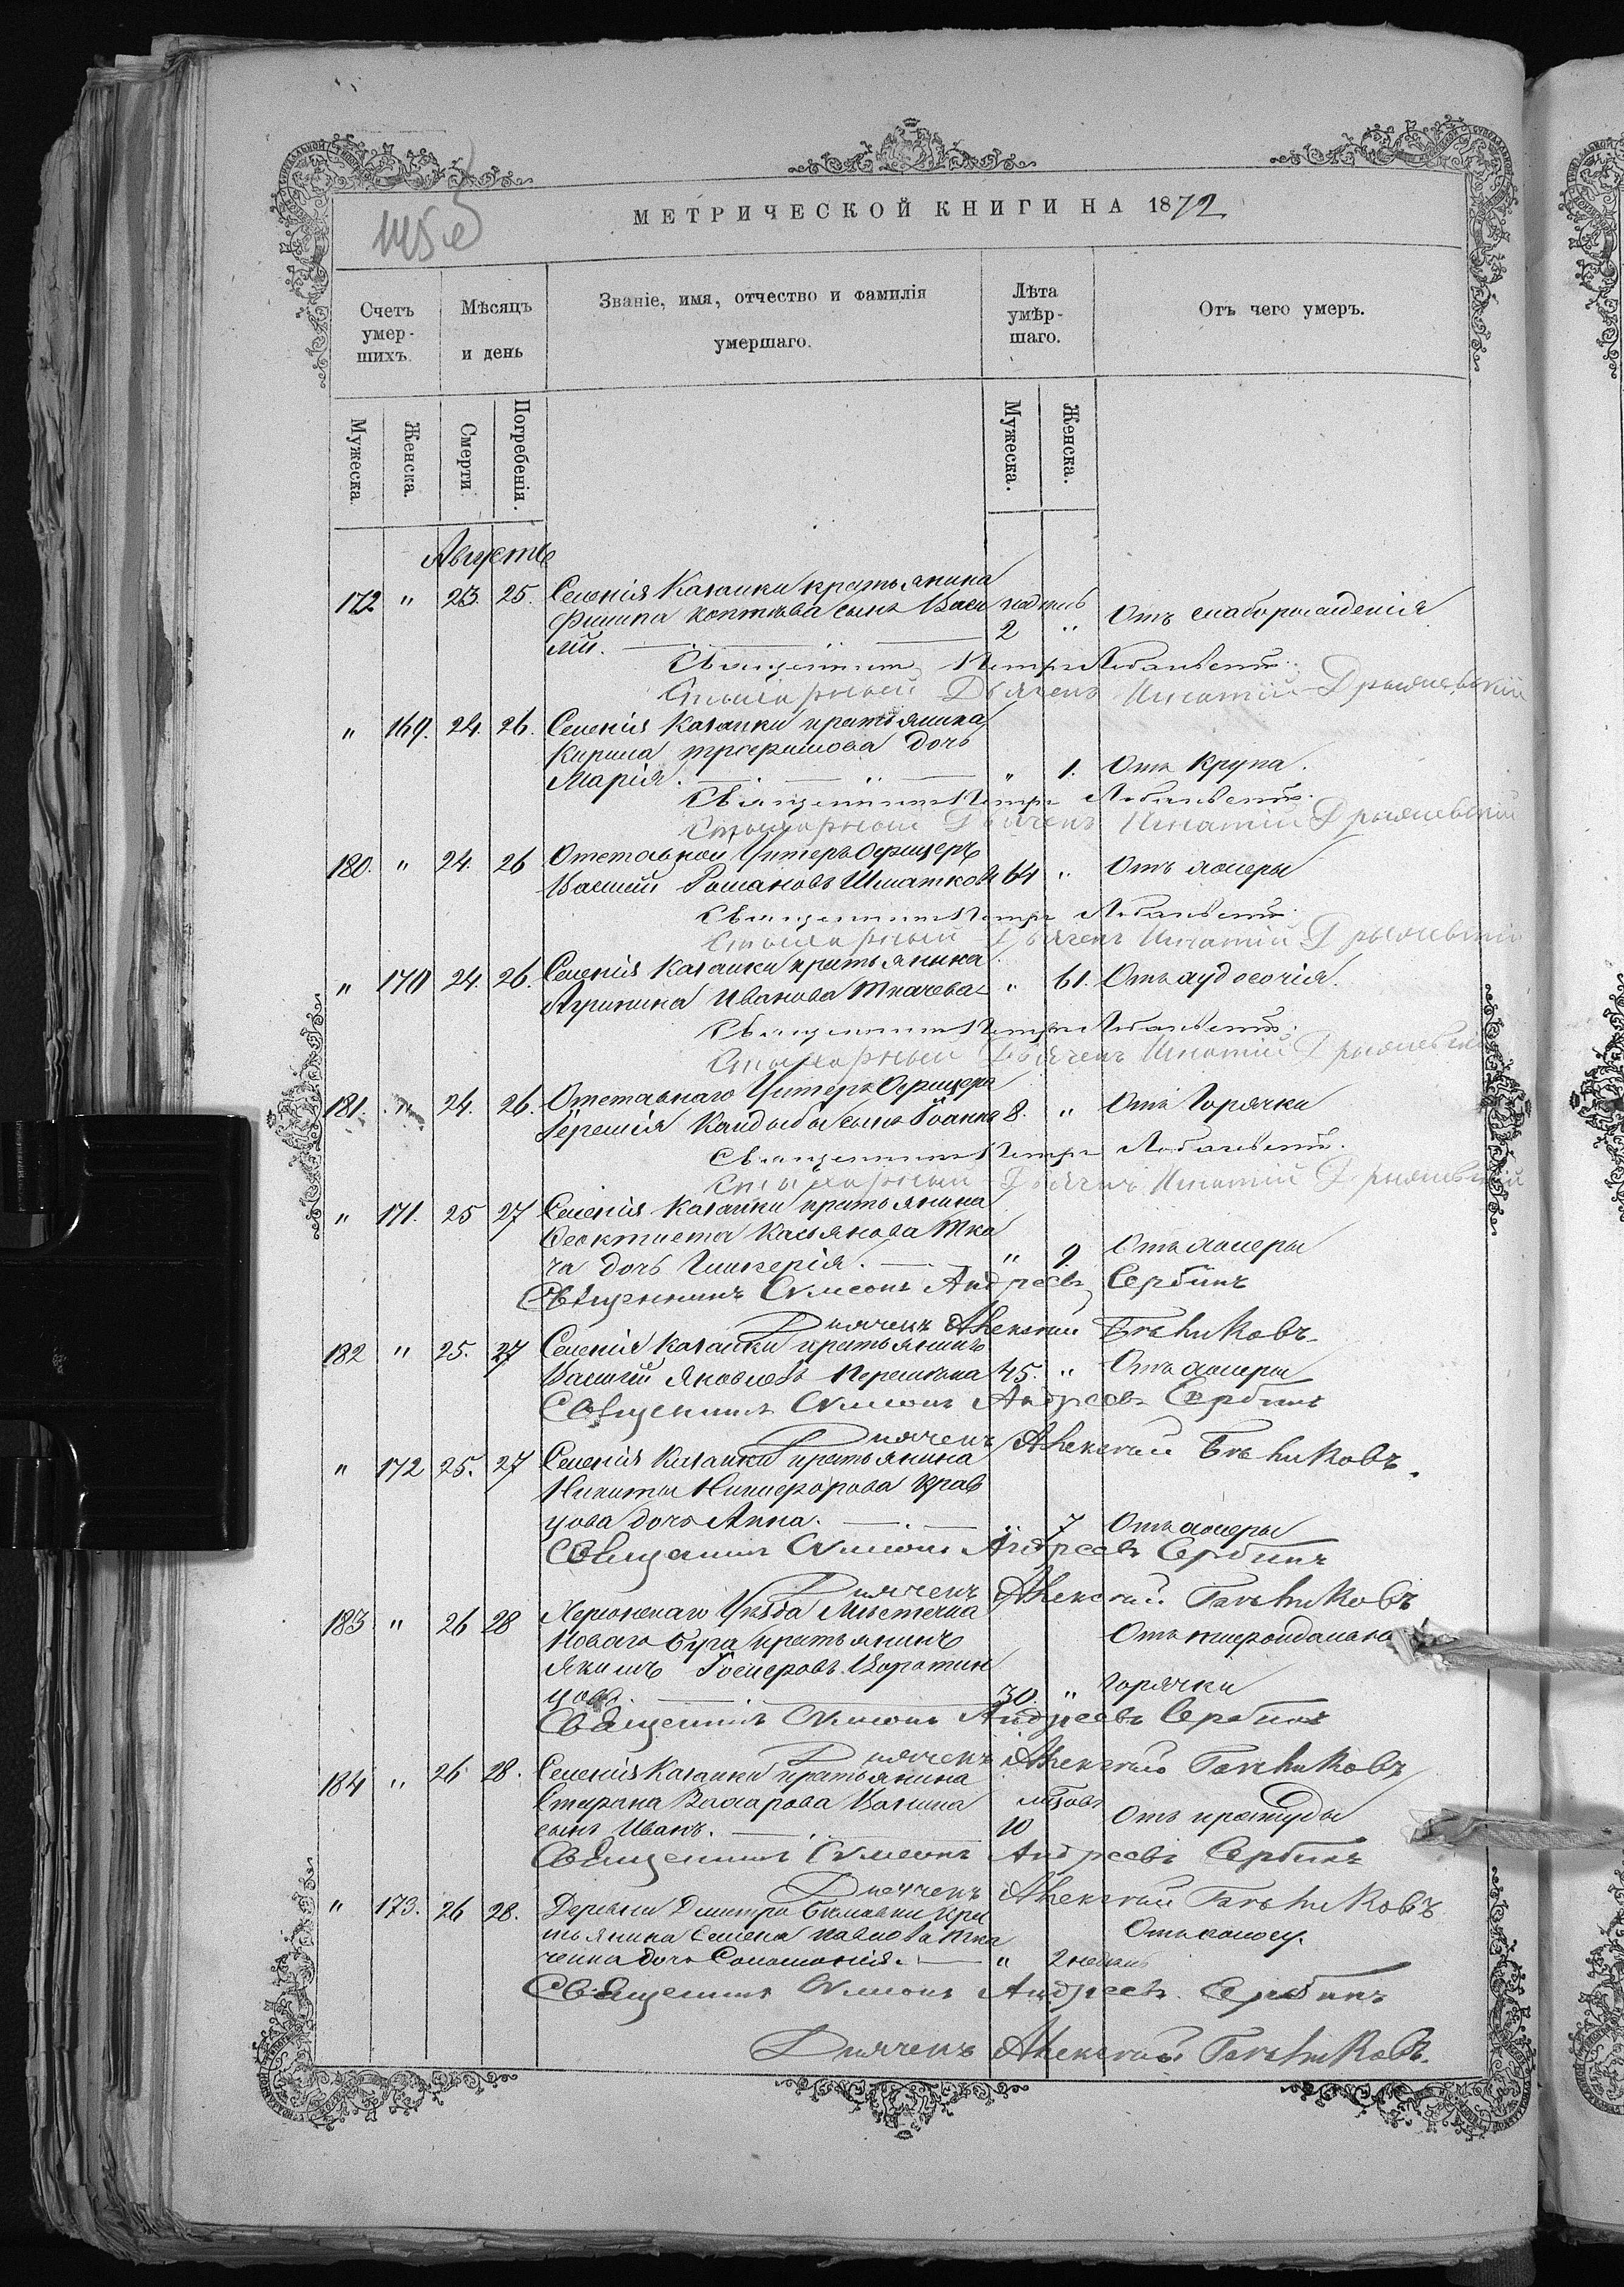 МЕТРИЧЕСКОЙ КНИГИ НА 1872
Счетъ умер- шихъ.
Мѣсяцъ и день
Званіе, имя, отчество и фамилія умершаго.
Лѣта умѣр- шаго.
Отъ чего умеръ.
Мужеска.
Женска.
Смерти.
Погребенія.
Мужеска.
Женска.
Августъ
172 " 23. 25. Селенія Казанки крестьянина
сынъ Васи недѣль
лій. 2 " Отъ слаборожденія
Священникъ Петръ
Дьячекъ Игнатій
" 169. 24. 26. Селенія Казанки крестьянина
Кирила Трофимова дочь
Марія. " 1. Отъ крупа.
Священникъ Петръ
Дьячекъ Игнатій
180. " 24. 26 Отставной Унтеръ Офицеръ
Василій Романовъ Шматковъ 64 " Отъ холеры
Священникъ Петръ
Дьячекъ Игнатій
" 170 24. 26. Селенія Казанки крестьянина
Агрипина Иванова Ткачева " 61. Отъ худосочія.
Священникъ Петръ
Дьячекъ Игнатій
181. " 24. 26. Отставнаго Унтеръ Офицера
Іеремія Кандыбы сынъ Іоаннъ 8. " Отъ Горячки
Священникъ Петръ
Дьячекъ Игнатій
" 171. 25 27 Селенія Казанки крестьянина
Феоктиста Касьянова Тка
ча дочь Гликерія. " 9. Отъ холеры
Священникъ Симеонъ Андреевъ Сербинъ
Дьячекъ Алексѣй
182 " 25. 27 Селенія Казанки крестьянинъ
Василій Яковлевъ 45. " Отъ холеры
Священникъ Симеонъ Андреевъ Сербинъ
Дьячекъ Алексѣй
" 172 25. 27 Селенія Казанки крестьянина
Никиты Никифорова Крав
цова дочь Анна. " 7 Отъ холеры
Священникъ Симеонъ Андреевъ Сербинъ
Дьячекъ Алексѣй
183 " 26 28 Херсонскаго Уѣзда Мѣстечка
Новаго Буга крестьянинъ Отъ тифоидальной
Якимъ Іосифовъ Воротин
цовъ. 30. " горячки
Священникъ Симеонъ Андреевъ Сербинъ
Дьячекъ Алексѣй
184 " 26 28. Селенія Казанки крестьянина
Стефана Захарова лѣтъ
сынъ Иванъ. 10 Отъ простуды
Священникъ Симеонъ Андреевъ Сербинъ
Дьячекъ Алексѣй
" 173. 26 28. Деревни Дмитро Бѣловки кре
стьянина Семена Павлова Тка
ченка дочь Соломонія. " 2 недѣль
Священникъ Симеонъ Андреевъ Сербинъ
Дьячекъ Алексѣй